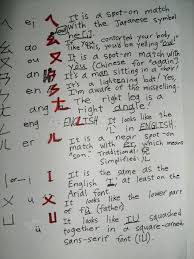 ㄟ ei ㄟ It is a spot-on match
with the Japanese symbol
he (へ).
If contorted your body
ㄡ ou 又 like this, you'd be yelling "Ow"
It is a spot-on match with
又 you (Chinese for "again").
ㄢ an It's a man sitting in a chair!
It's a lightening bolt! Yes,
The right leg is a
ㄤ ang right angle!
ㄥ eng ENGLISH. It looks like the
L in ENGLISH.
ㄦ er 儿 It is a near spot-on
match with er, which means
"son". Traditional: 兒
Simplified: 儿
It is the same as the
English I, at least on the
Arial font.
ㄨ u ㄨ It looks like the lower part
of fù (father)
ㄩ ü ㄩ It looks like IU squashed
together in a square-
sans-serif font (IU).